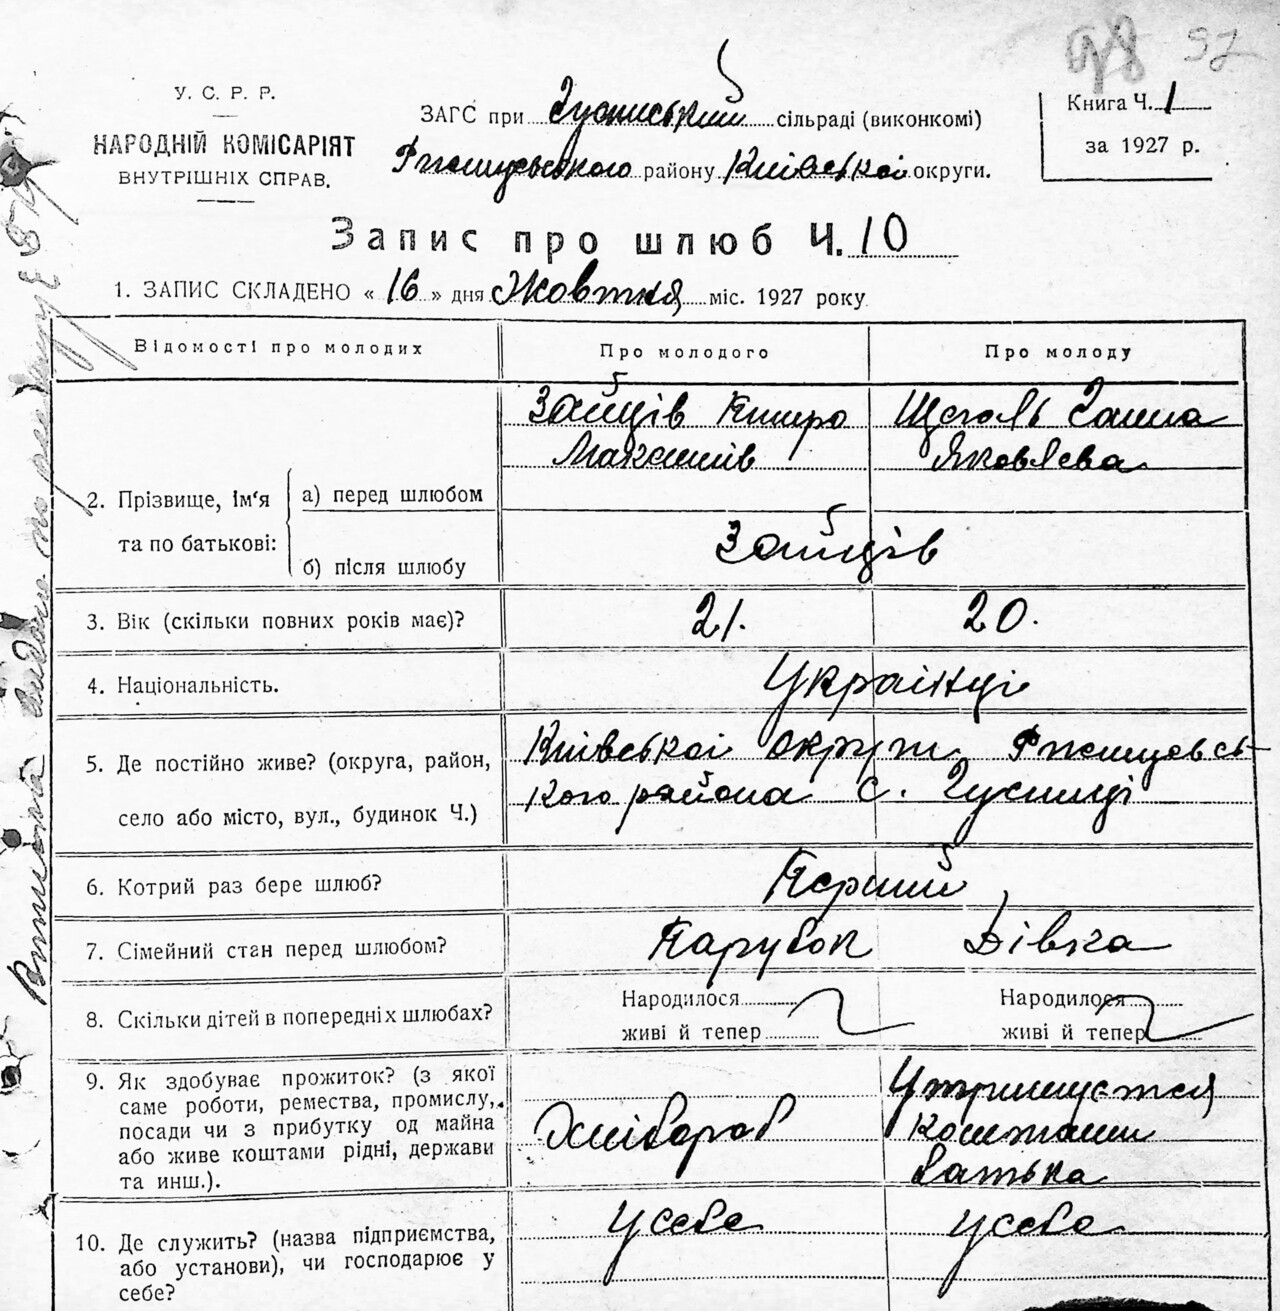 98 92
У. С. Р. Р.
НАРОДНІЙ КОМІСАРІЯТ
ВНУТРІШНІХ СПРАВ.
ЗАГС при сільраді (виконкомі)
району Київської округи.
Книга Ч. 1
за 1927 р.
Запис про шлюб Ч. 10
1. ЗАПИС СКЛАДЕНО « 16 » дня Жовтня міс. 1927 року
Відомості про молодих Про молодого Про молоду
Зайців Кипро Щеголь Ганна
Максимів Яковлева
2. Прізвище, ім‘я та по батькові:
а) перед шлюбом
б) після шлюбу
Зайців
3. Вік (скільки повних років має)? 21. 20.
4. Національність. Українці
5. Де постійно живе? (округа, район,
село або місто, вул., будинок Ч.)
Київської округи Ржищевсь-
кого района с. Гусинці
6. Котрий раз бере шлюб? Перший
7. Сімейний стан перед шлюбом? Парубок Дівка
8. Скільки дітей в попередніх шлюбах?
Народилося Народилося
живі й тепер живі й тепер
9. Як здобуває прожиток? (з якої
саме роботи, ремества, промислу,
посади чи з прибутку од майна
або живе коштами рідні, держави
та инш.).
Хлібороб
Утримується
коштами
батька
10. Де служить? (назва підприємства,
або установи), чи господарює у
себе?
усебе усебе